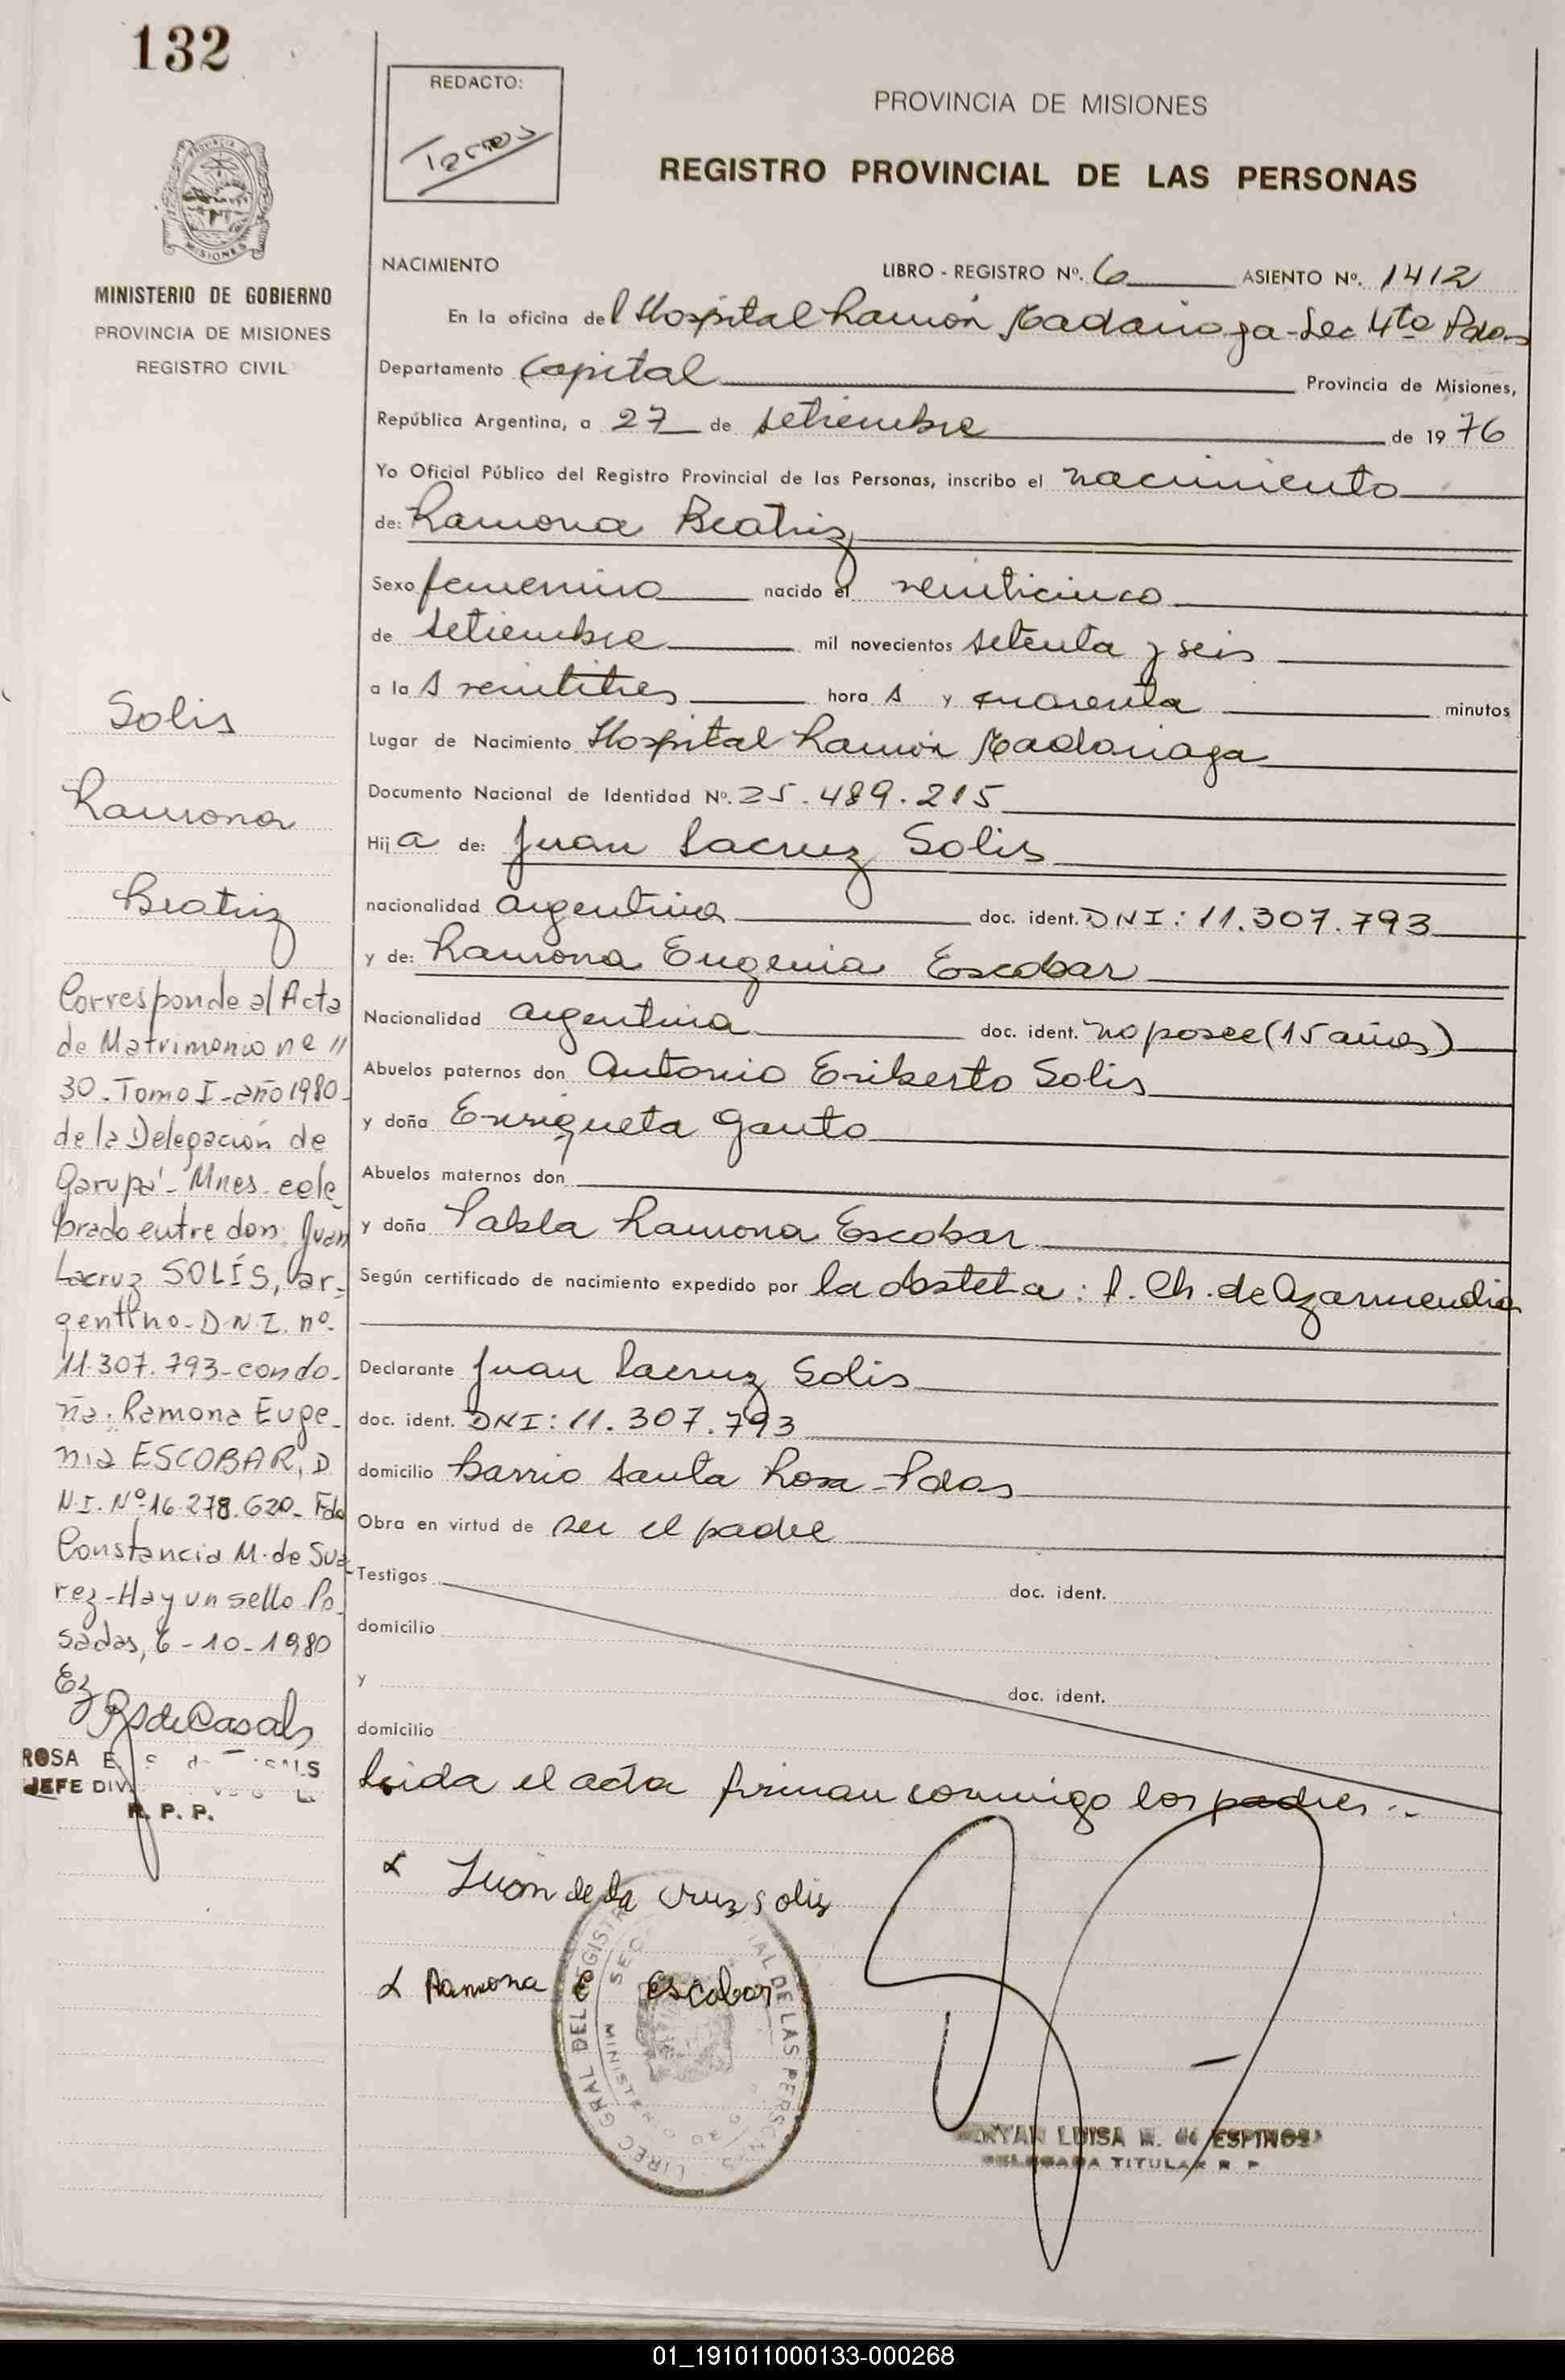 132
REDACTO:
PROVINCIA DE MISIONES
REGISTRO PROVINCIAL DE LAS PERSONAS
MISIONES
MINISTERIO DE GOBIERNO
PROVINCIA DE MISIONES
REGISTRO CIVIL
NACIMIENTO LIBRO - REGISTRO Nº. 6 ASIENTO Nº. 1412
En la oficina del Hospital Ramón Madariaga - Sec 4ta Pdas
Departamento Capital Provincia de Misiones,
República Argentina, a 27 de setiembre de 1976
Yo Oficial Público del Registro Provincial de las Personas, inscribo el nacimiento
de: Ramona Beatriz
Sexo femenino nacido el veinticinco
de setiembre mil novecientos setenta y seis
a la s veintitres hora s y cuarenta minutos
Lugar de Nacimiento Hospital Ramón Madariaga
Documento Nacional de Identidad Nº. 25.489.215
Hij a de: Juan Lacruz Solis
nacionalidad argentina doc. ident. DNI: 11.307.793
y de: Ramona Eugenia Escobar
Nacionalidad argentina doc. ident. no posee (15 años)
Abuelos paternos don Antonio Eriberto Solis
y doña Enriqueta Gauto
Abuelos maternos don
y doña Pabla Ramona Escobar
Según certificado de nacimiento expedido por la obstetra: f. Ch. de Azarmendia
Declarante Juan Lacruz Solis
doc. ident. DNI: 11.307.793
domicilio barrio Santa Rosa - Pdas
Obra en virtud de ser el padre
Testigos doc. ident.
domicilio
y doc. ident.
domicilio
Leida el acta firman conmigo los padres..
Juan de la Cruz Solis
Ramona E Escobar
LUISA M. de ESPINOS
DELEGADA TITULAR R P
Solis
Ramona
Beatriz
Corresponde al Acta
de Matrimonio nº 11
30 - Tomo I - año 1980 -
de la Delegación de
Garupá - Mnes. cele
brado entre don: Juan
Lacruz SOLÍS, ar-
gentino - D.N.I. nº.
11.307.793 - con do-
ña: Ramona Euge-
nia ESCOBAR, D
N.I. Nº 16.278.620 - Fdo
Constancia M. de Sua
rez - Hay un sello Po-
sadas, 6 - 10 - 1980
RS de Casals
ROSA E
JEFE DIV
R. P. P.
01_191011000133-000268